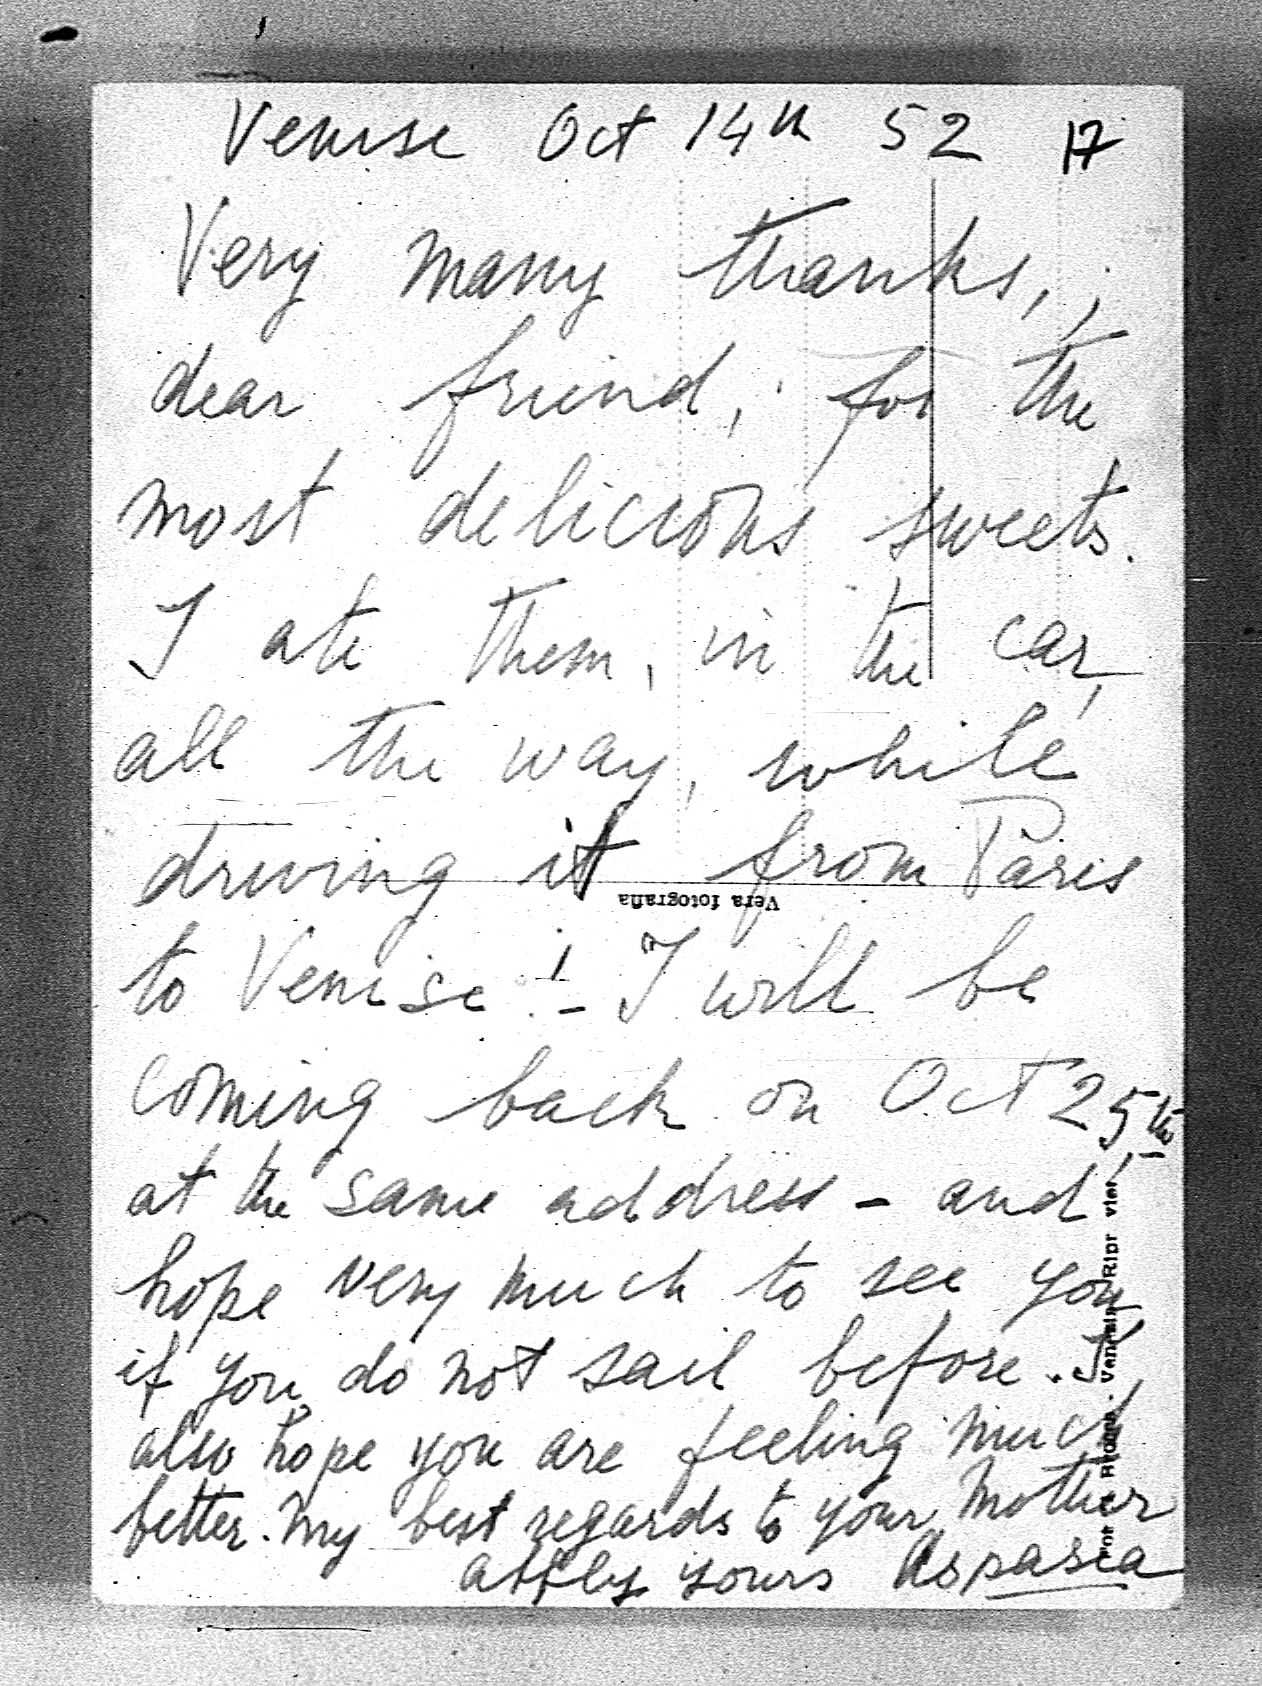 Venise Oct 14th 52 17
Very many thanks,
dear friend, for the
most delicious sweets.
I ate them, in the car,
all the way, while
driving it from Paris
Vera fotografia
to Venise! - I will be
coming back on Oct 25th
at the same address - and
hope very much to see you
if you do not sail before. I
also hope you are feeling much
better. My best regards to your Mother
affly yours Aspasia